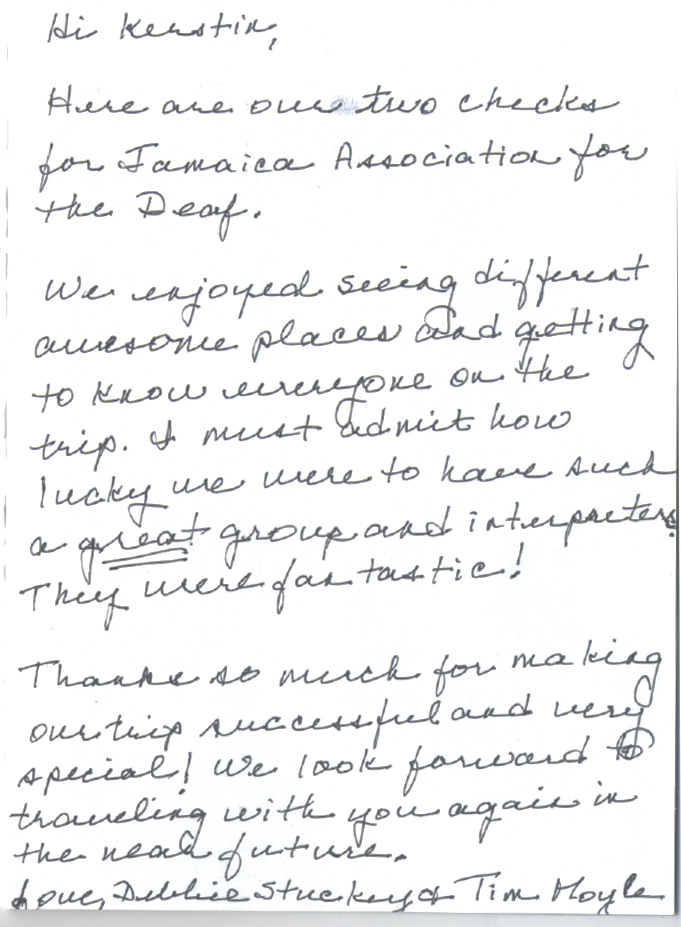 Hi Kerstin,
Here are our two checks
for Jamaica Association for
the Deaf.
We enjoyed seeing different
awesome places and getting
to know everyone on the
trip. I must admit how
lucky we were to have such
a great group and interpreters.
They were fantastic!
Thanks so much for making
our trip successful and very
special! We look forward to
traveling with you again in
the near future.
Love, Debbie Stuckey & Tim Moyle